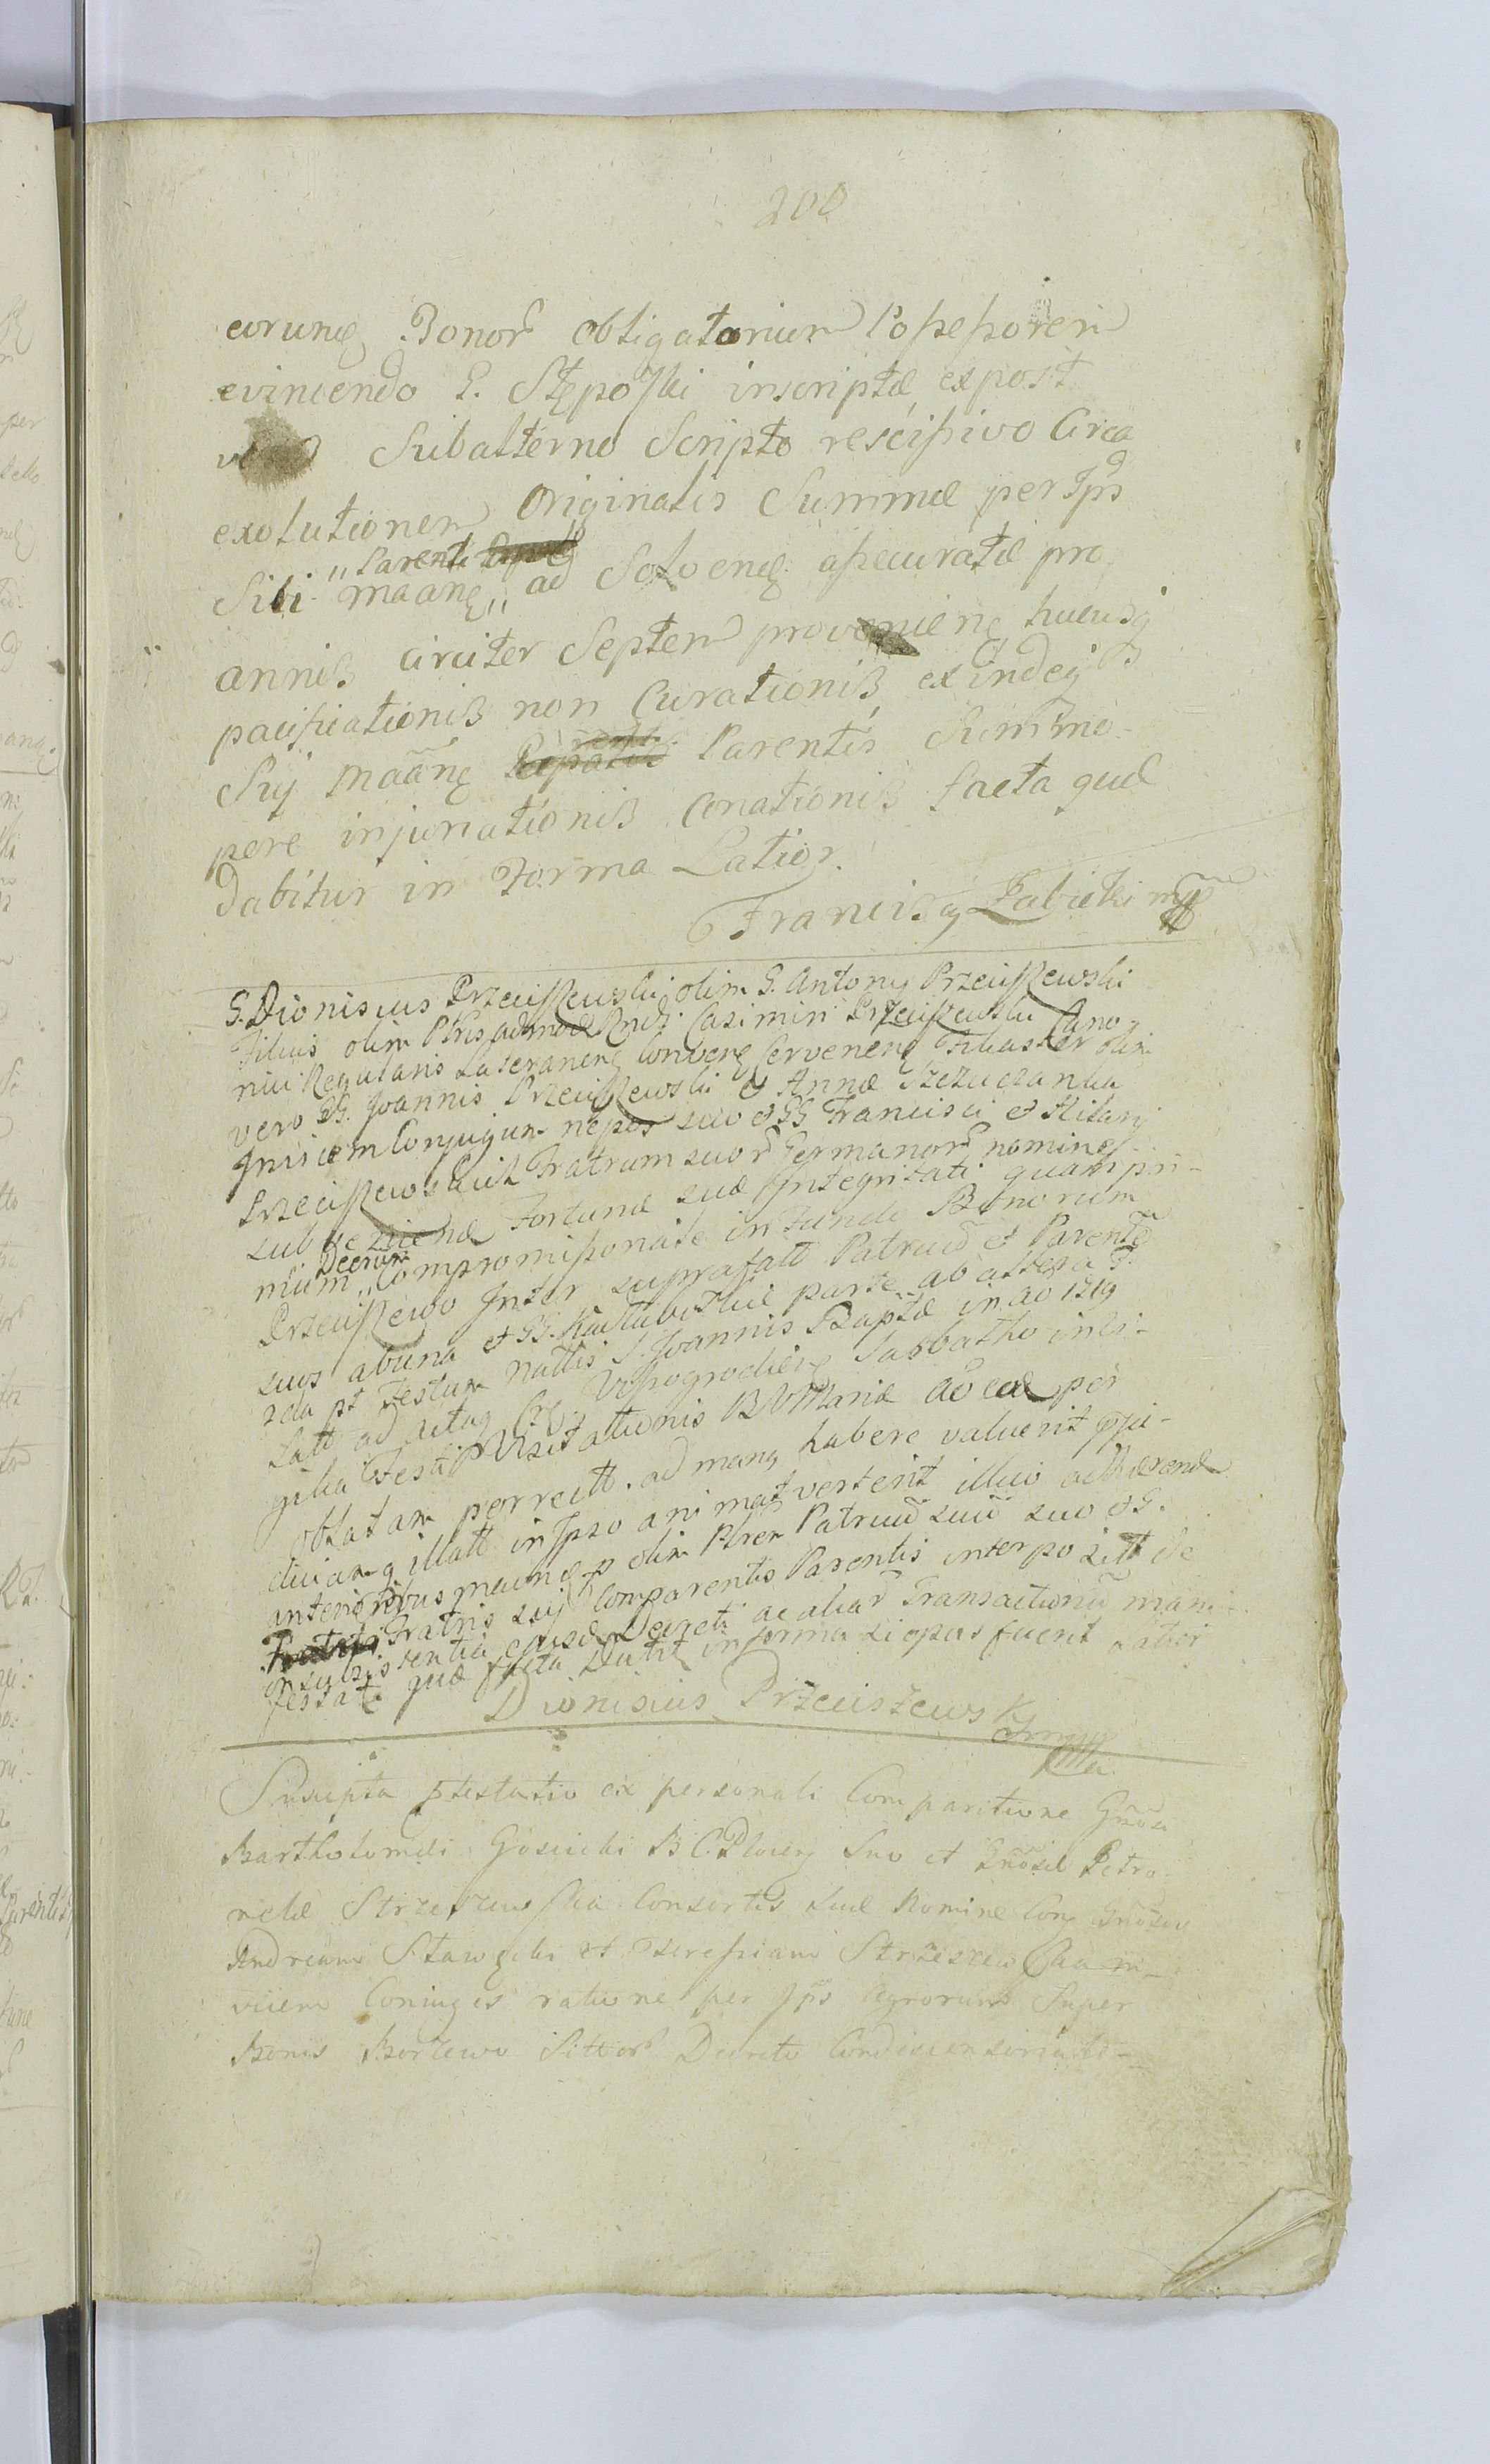 200
eorunq Bonor obligatorium Possessorem
evincendo G. Stęposki inscriptæ expost
Subalterno Scripto rescissivo Circa
exolutionem Originalis Summæ per Ips
Sibi „Parenti maanę„ ad Solvenq. assecuratæ pro
annis circiter Septem provenienę hucusq
pacificationis non Curationis, exindeq
Sui maanę Parentis Summo-
pere injuriationis Conationis facta quæ
dabitur in Forma Latior.
Francisq Zabicki mp
G. Dionisius Przeciszewski olim G. Antony Przeciszewski
Filius olim Pbris admod Rndi Casimiri Przeciszewski Cano-
nici Regularis Lateranenę Convenę Cervenenę Filiaster olim
vero GG. Joannis Przeciszewski et Annæ
Invicem Conjugum nepos suo et GG Francisci et Hilary
Przeciszewskich Fratrum suor Germanor nomine
subveniendæ Fortunæ suæ Integritati quampri-
mum „Decretum Compromissoriale in Fundo Bonorum
Przeciszewo Inter suprafatt Patruū et Parentē
suos ab una et GG. parte ab altera F.
2da pt Festum Nattis S. Joannis Baptæ in ao 1719
Latt ad acta Wyssogrodienę Sabbatho in Vi-
gilia Festi Visitationis B V Mariæ ao eod per
oblatam porrectt. ad manq habere valuerit
illatt in Ipso animatverterit illico adhærendæ
anterioribus p olim Pbrem Patruū suū suo et G.
Fratris sui Comparentis Parentis interpositt de
insubsistentia ejusd Decreti ac aliar Transactionū mani-
festatę quæ facta Dabit in forma si opus fuerit Latior
Dionisius Przeciszewski mp
Suscepta ptestatio ex personali Comparitione Gnosi
Bartholomæi Gosicki B C. Plocenę Suo et Gnosæ Petro-
nelæ Strzeszewska Consortis suæ Nomine Con Gnosos
Andream Stawęcki et Teressiam Strzeszewska in-
vicem Coniuges ratione per Ips Agrorum Super
Bonis Borzewo Sittor Decreto Condescensoriali